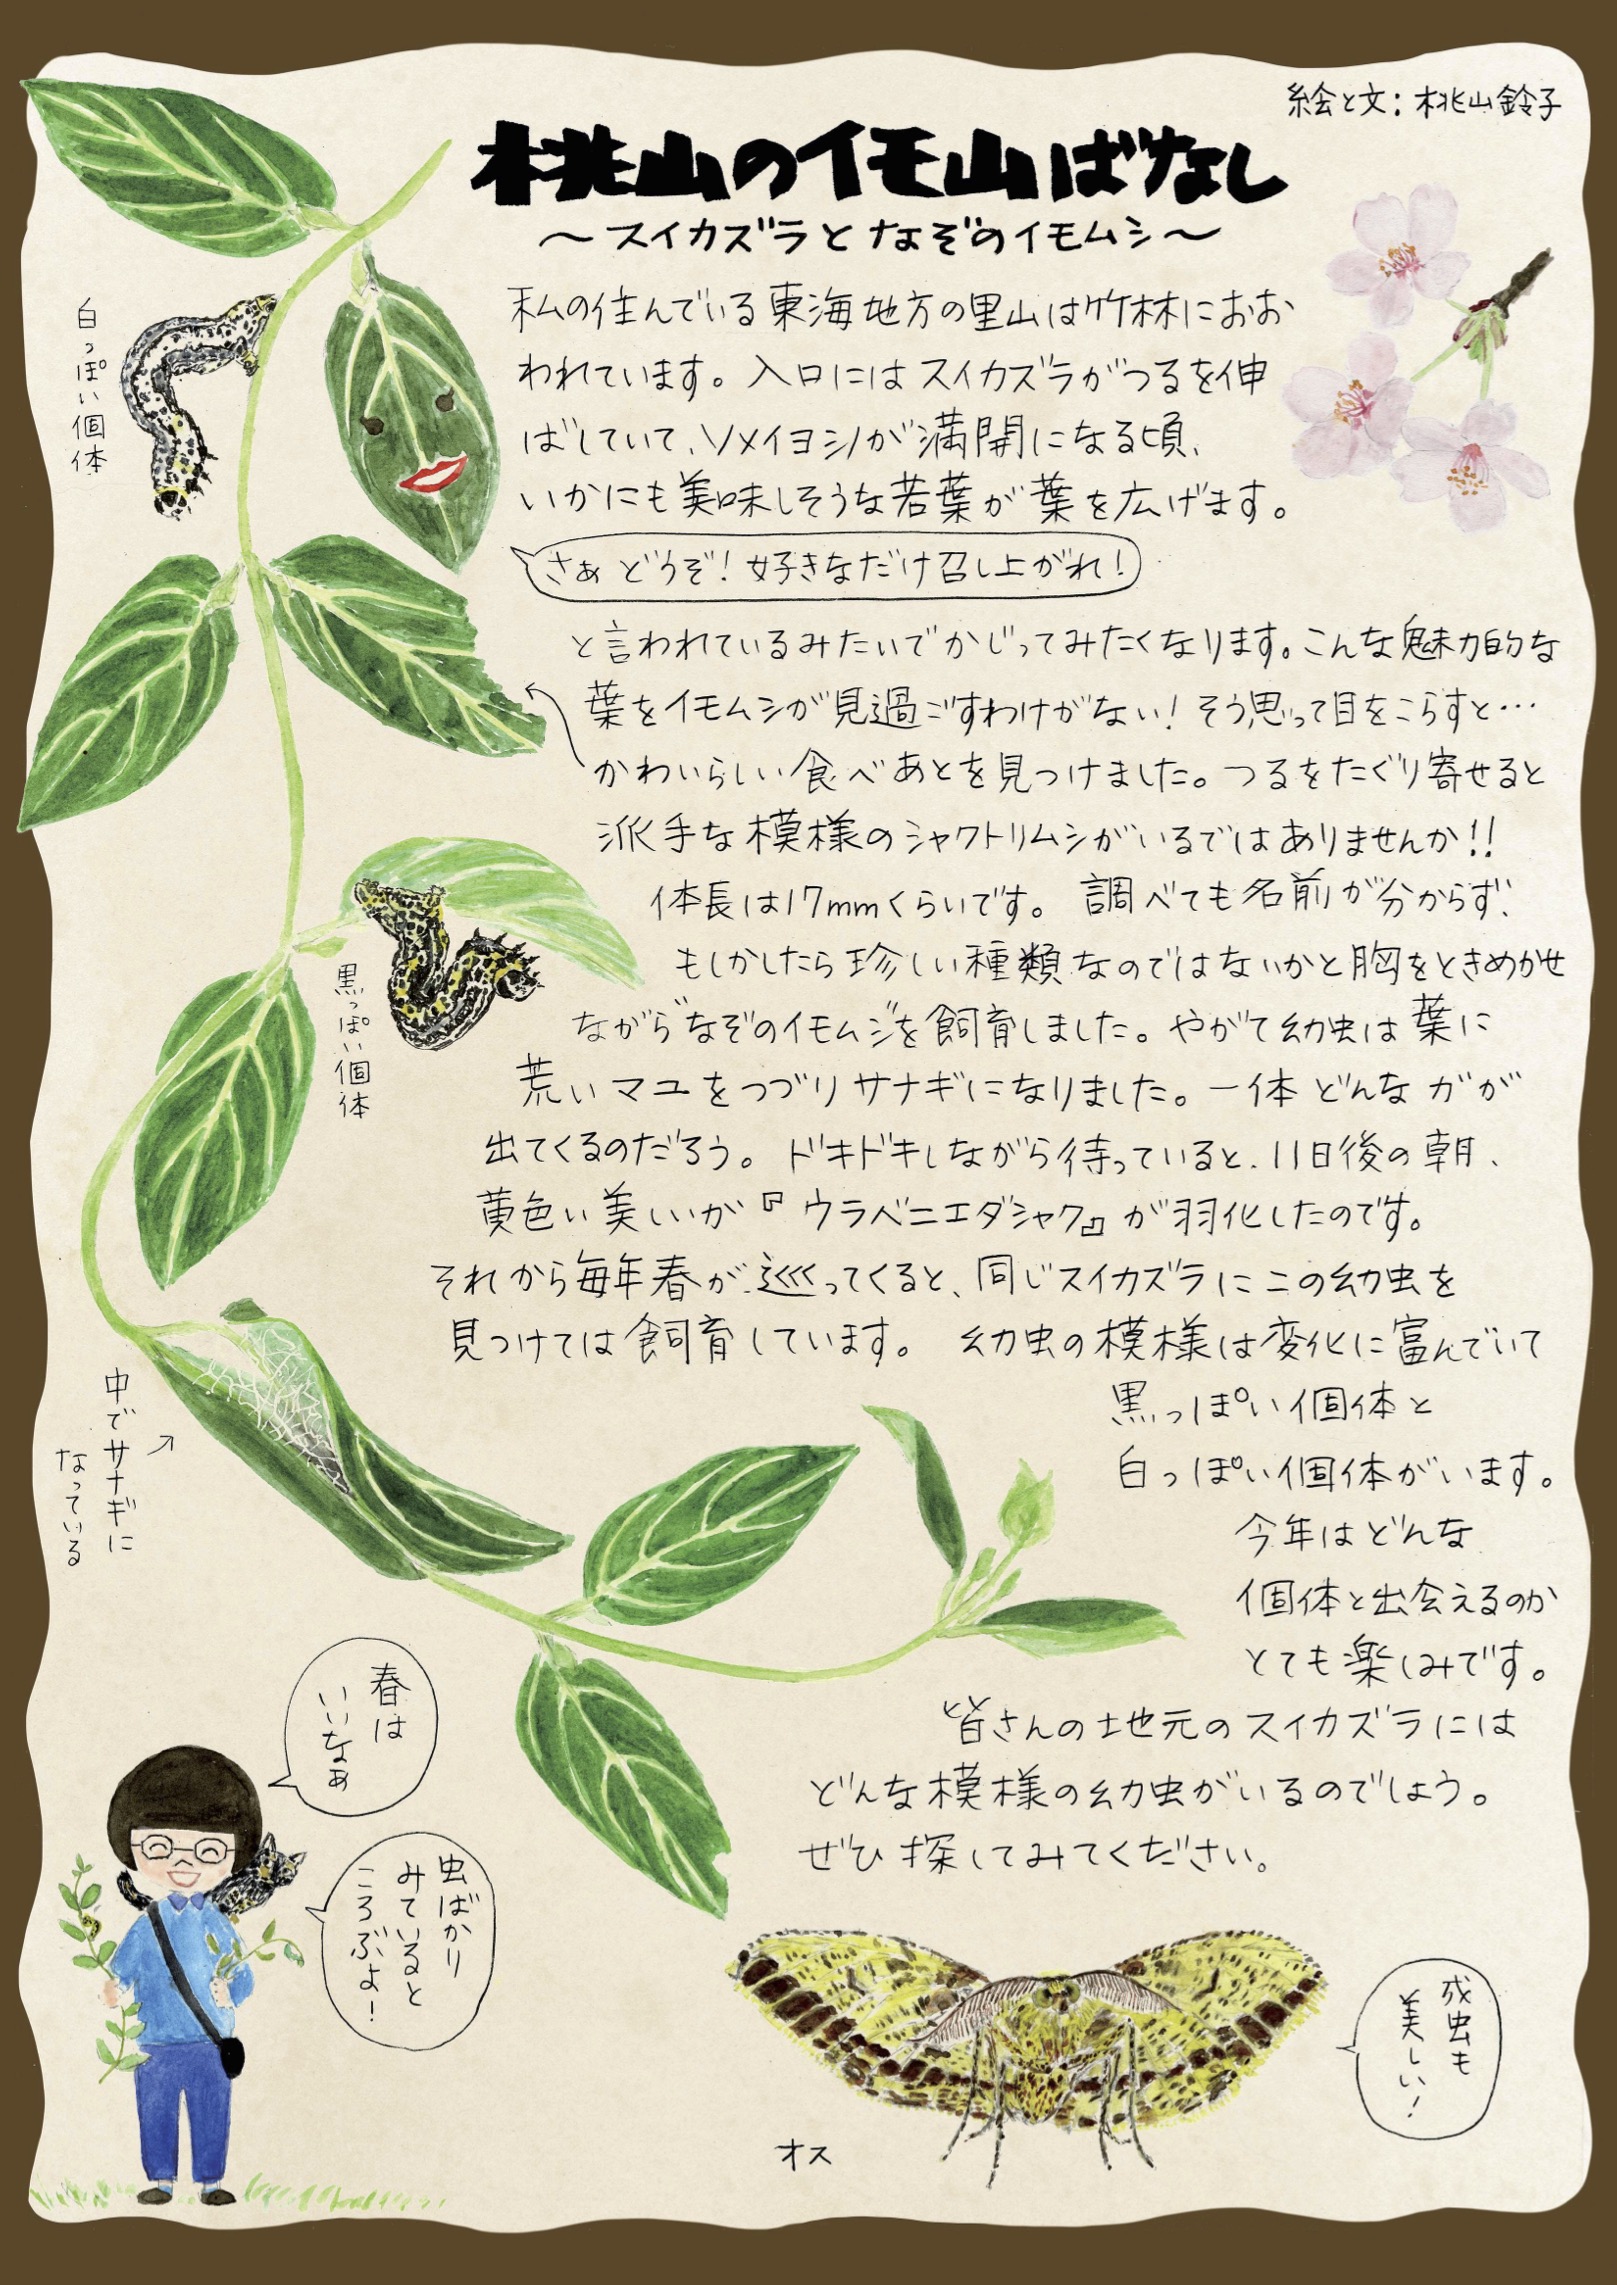 絵と文:桃山鈴子
桃山のイモ山ばなし
～スイカズラとなぞのイモムシ～
私の住んでいる東海地方の里山は竹林におお
われています。入口にはスイカズラがつるを伸
ばしていて、ソメイヨシノが満開になる頃、
いかにも美味しそうな若葉が葉を広げます。
さぁどうぞ!好きなだけ召し上がれ!
と言われているみたいでかじってみたくなります。こんな魅力的な
葉をイモムシが見過ごすわけがない!そう思って目をこらすと…
かわいらしい食べあとを見つけました。つるをたぐり寄せると
派手な模様のシャクトリムシがいるではありませんか!!
体長は17mmくらいです。調べても名前が分からず、
もしかしたら珍しい種類なのではないかと胸をときめかせ
ながら“なぞのイモムシ”を飼育しました。やがて幼虫は葉に
荒いマユをつづりサナギになりました。一体どんなガが
出てくるのだろう。ドキドキしながら待っていると、11日後の朝、
黄色い美しいが『ウラベニエダシャク』が羽化したのです。
それから毎年春が巡ってくると、同じスイカズラにこの幼虫を
見つけては飼育しています。幼虫の模様は変化に富んでいて
黒っぽい個体と
白っぽい個体がいます。
今年はどんな
個体と出会えるのか
とても楽しみです。
皆さんの地元のスイカズラには
どんな模様の幼虫がいるのでしょう。
ぜひ探してみてください。
白っぽい個体
黒っぽい個体
中でサナギに
なっている
春は
いいなぁ
虫ばかり
みていると
ころぶよ!
オス
成虫も
美しい!